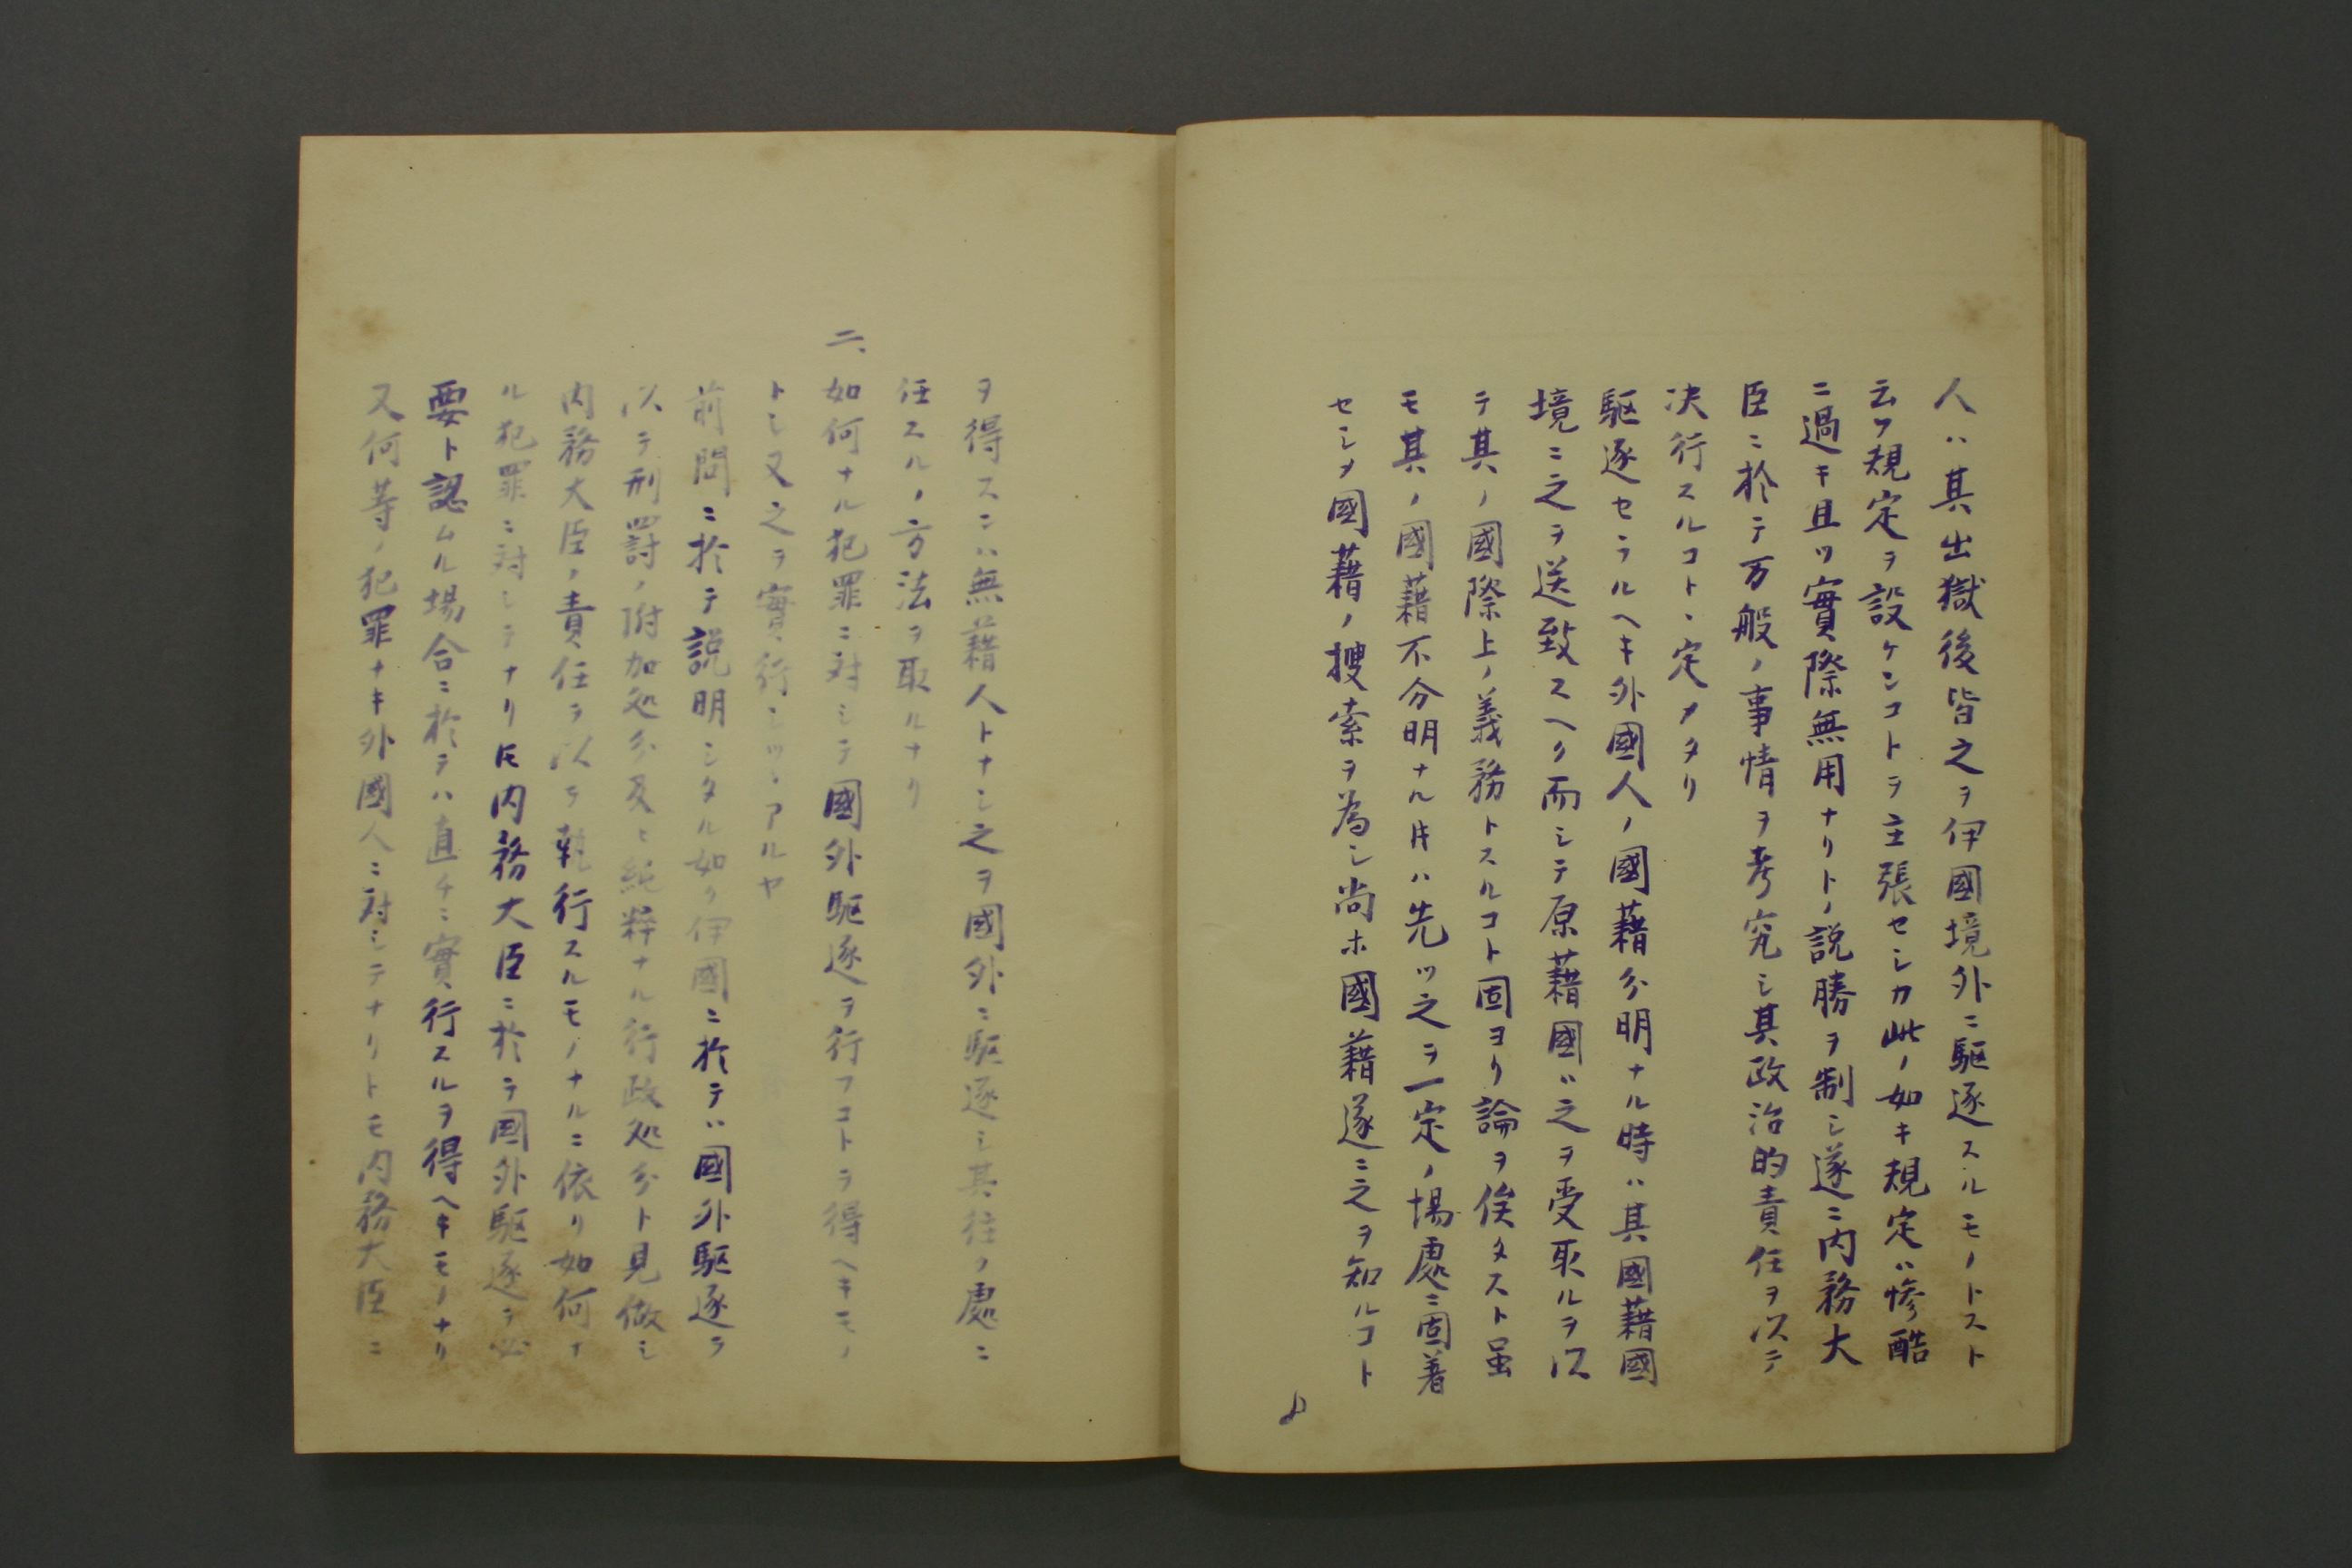 人ハ其出獄後皆之ヲ伊國境外ニ駆逐スルモノトスト
云フ規定ヲ設ケンコトヲ主張セシカ此ノ如キ規定ハ惨酷
ニ過キ且ツ實際無用ナリトノ説勝ヲ制シ遂ニ内務大
臣ニ於テ万般ノ事情ヲ考究シ其政治的責任ヲ以テ
決行スルコトヽ定メタリ
駆逐セラルヘキ外國人ノ國藉分明ナル時ハ其國藉國
境ニ之ヲ送致スヘク而シテ原藉國ハ之ヲ受取ルヲ以
テ其ノ國際上ノ義務トスルコト固ヨリ論ヲ俟タスト虽
モ其ノ國藉不分明ナル片ハ先ツ之ヲ一定ノ場處ニ固着
セシメ國藉ノ捜索ヲ為シ尚ホ國藉遂ニ之ヲ知ルコト
ヲ得スンハ無藉人トナシ之ヲ國外ニ駆逐シ其往ク處ニ
任スルノ方法ヲ取ルナリ
二、如何ナル犯罪ニ対シテ國外駆逐ヲ行フコトヲ得ヘキモノ
トシ又之ヲ實行シツヽアルヤ
前問ニ於テ説明シタル如ク伊國ニ於テハ國外駆逐ヲ
以テ刑罰ノ附加処分及ヒ純粋ナル行政処分ト見做シ
内務大臣ノ責任ヲ以テ執行スルモノナルニ依リ如何ナ
ル犯罪ニ対シテナリ𪜈内務大臣ニ於テ國外駆逐ヲ必
要ト認ムル場合ニ於テハ直チニ實行スルヲ得ヘキモノナリ
又何等ノ犯罪ナキ外國人ニ対シテナリトモ内務大臣ニ